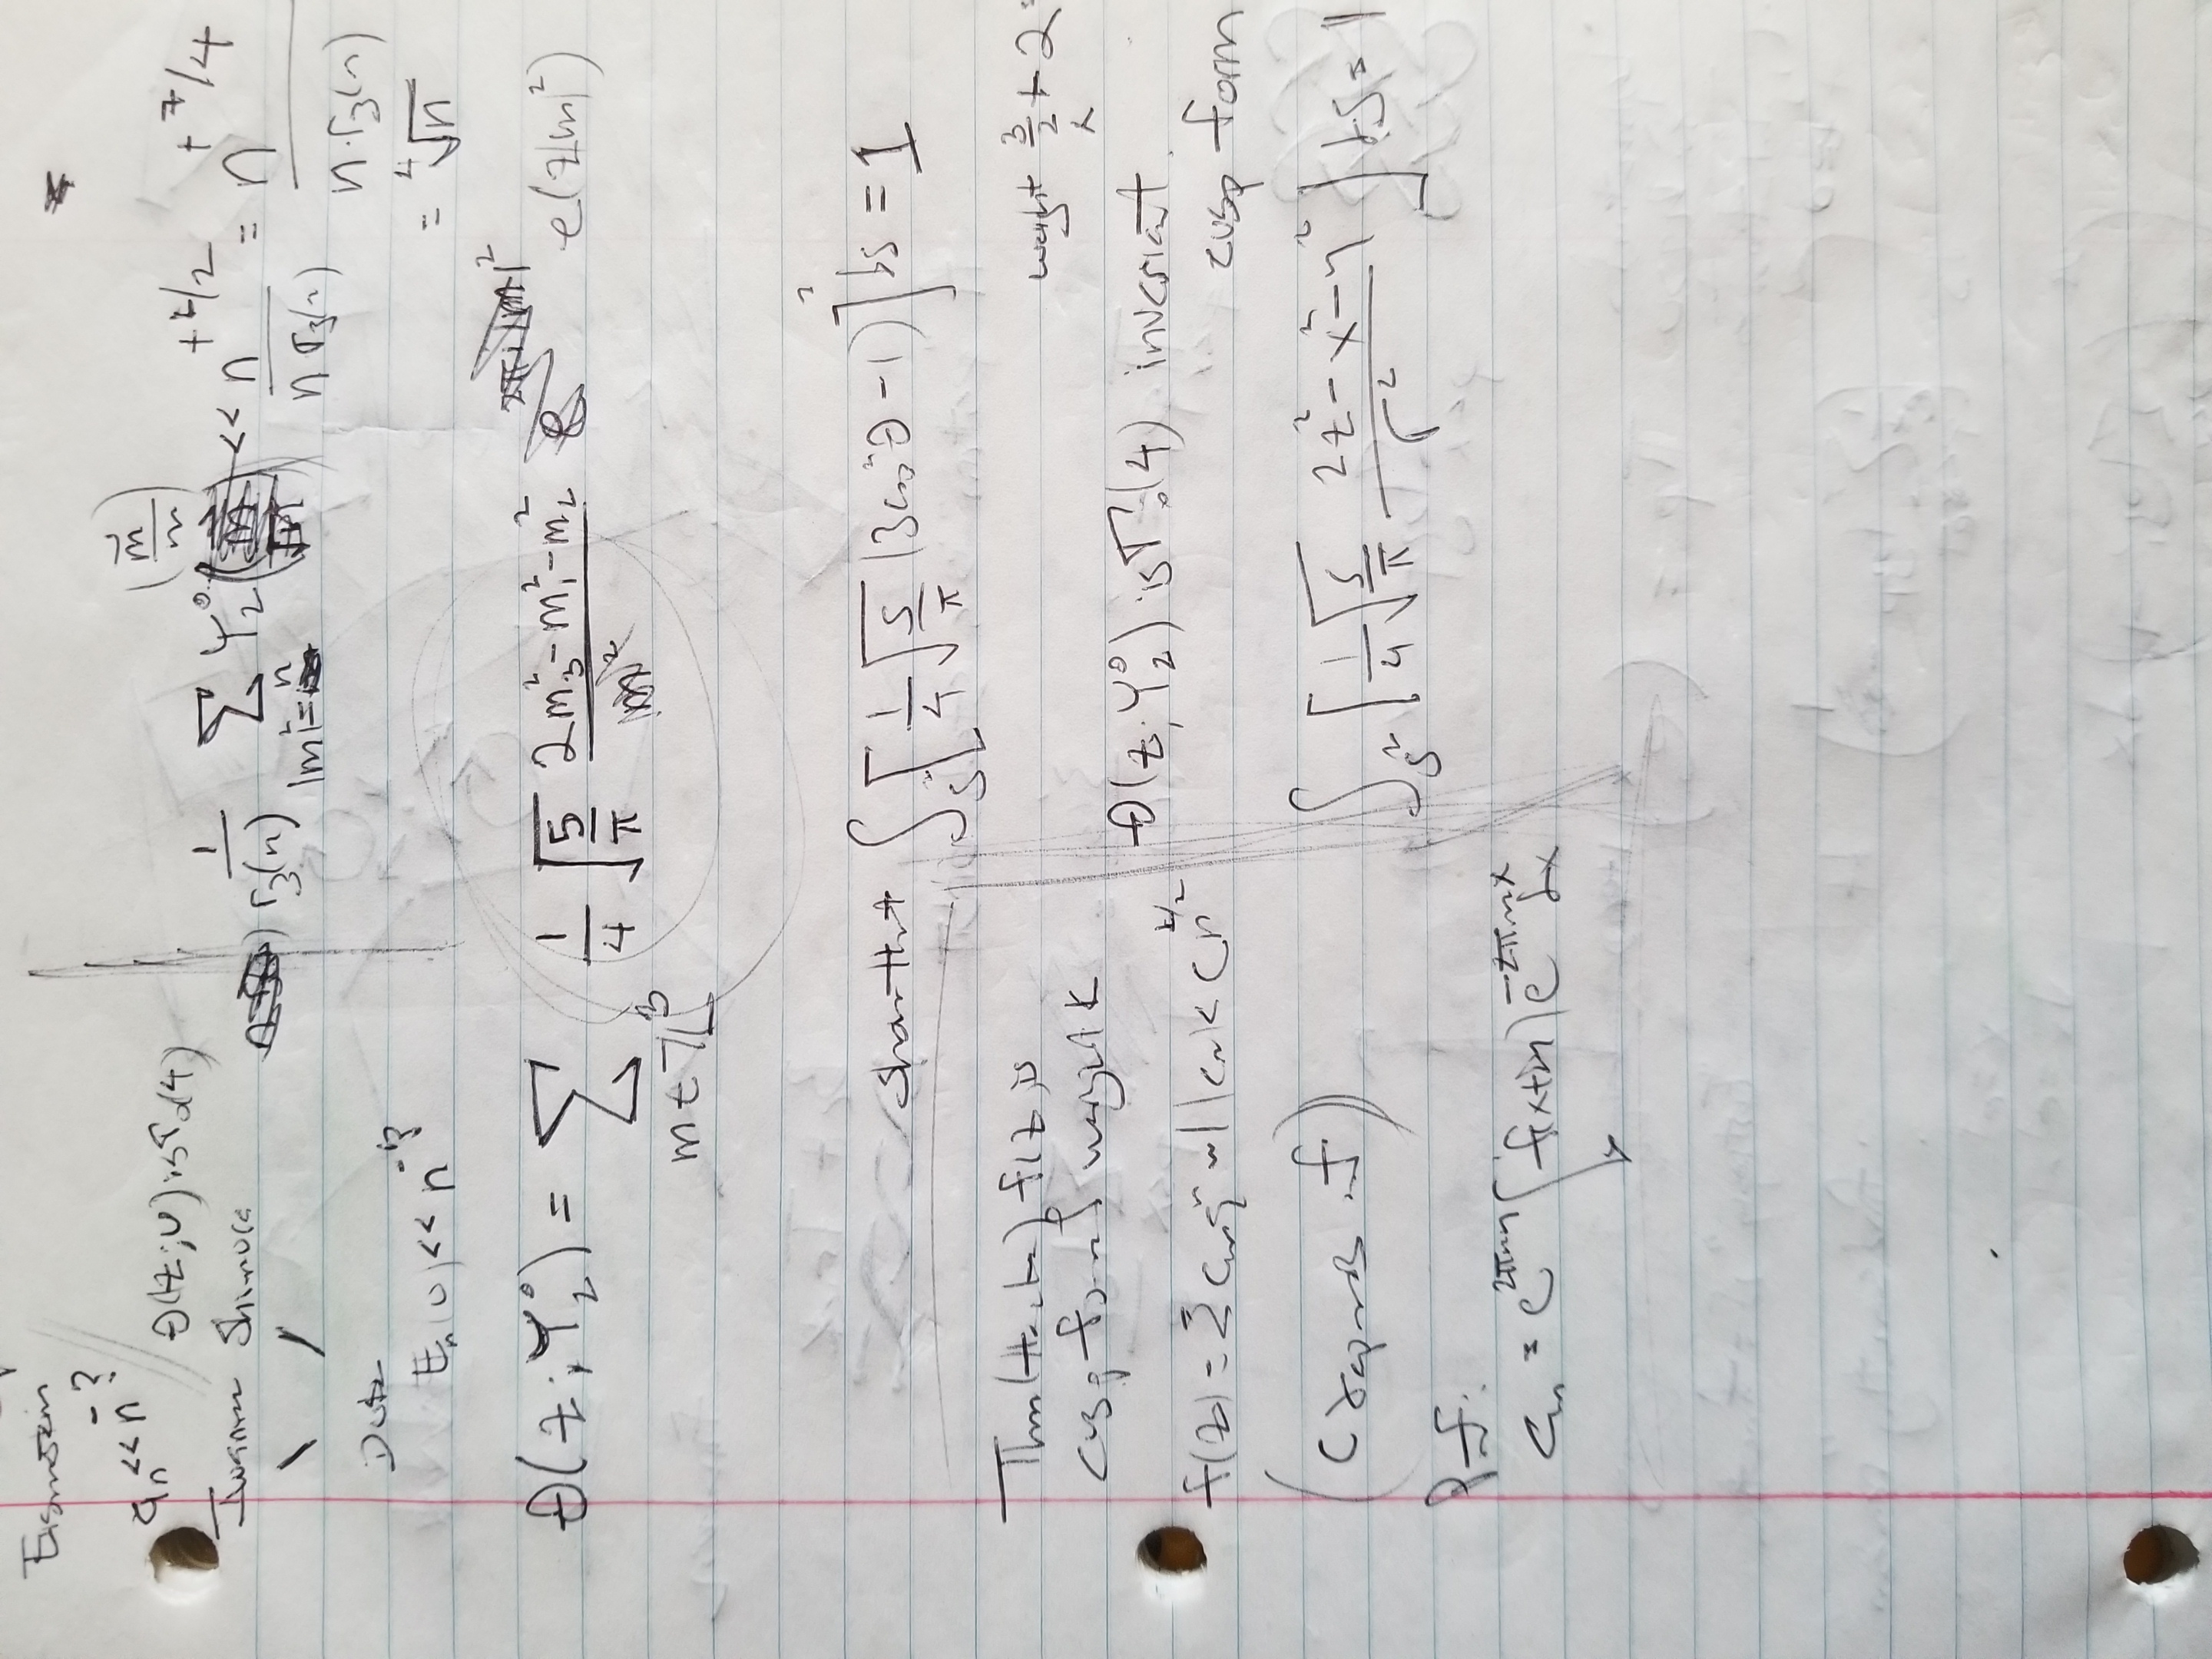 Eisenstein
a_n << n^{-?}
θ(z;υ) is Γ_0(4)
Iwaniec Shimura
\ /
Duke
E_n(υ) << n^{-?}
\frac{1}{r_3(n)} \sum_{|m|^2=n} Y_2^0 (\frac{m}{n}) << \frac{n^{+k/2}}{n r_3(n)} = \frac{n^{+7/4}}{n·r_3(n)}
= \sqrt[4]{n}
θ(z; Y_2^0) = \sum_{m∈ℤ^3} \frac{1}{4} \sqrt{\frac{5}{π}} \frac{2m_3^2-m_1^2-m_2^2}{} e(z|m|^2)
show that \int_{S^2} [\frac{1}{4} \sqrt{\frac{5}{π}} (3cos^2θ-1)]^2 dS = 1
Thm (Hecke) f(z) is
cusp form of weight k
f(z) = Σ c_n q^n w/ |c_n| < C n^{k/2}
(C depends f)
Pf:
c_n = e^{2πny} \int f(x+iy) e^{-2πinx} dx
weight \frac{3}{2} + 2
θ(z; Y_2^0) is Γ_0(4) invariant.
cusp form
\int_{S^2} [\frac{1}{4} \sqrt{\frac{5}{π}} \frac{2z^2-x^2-y^2}{r^2}] dS = 1